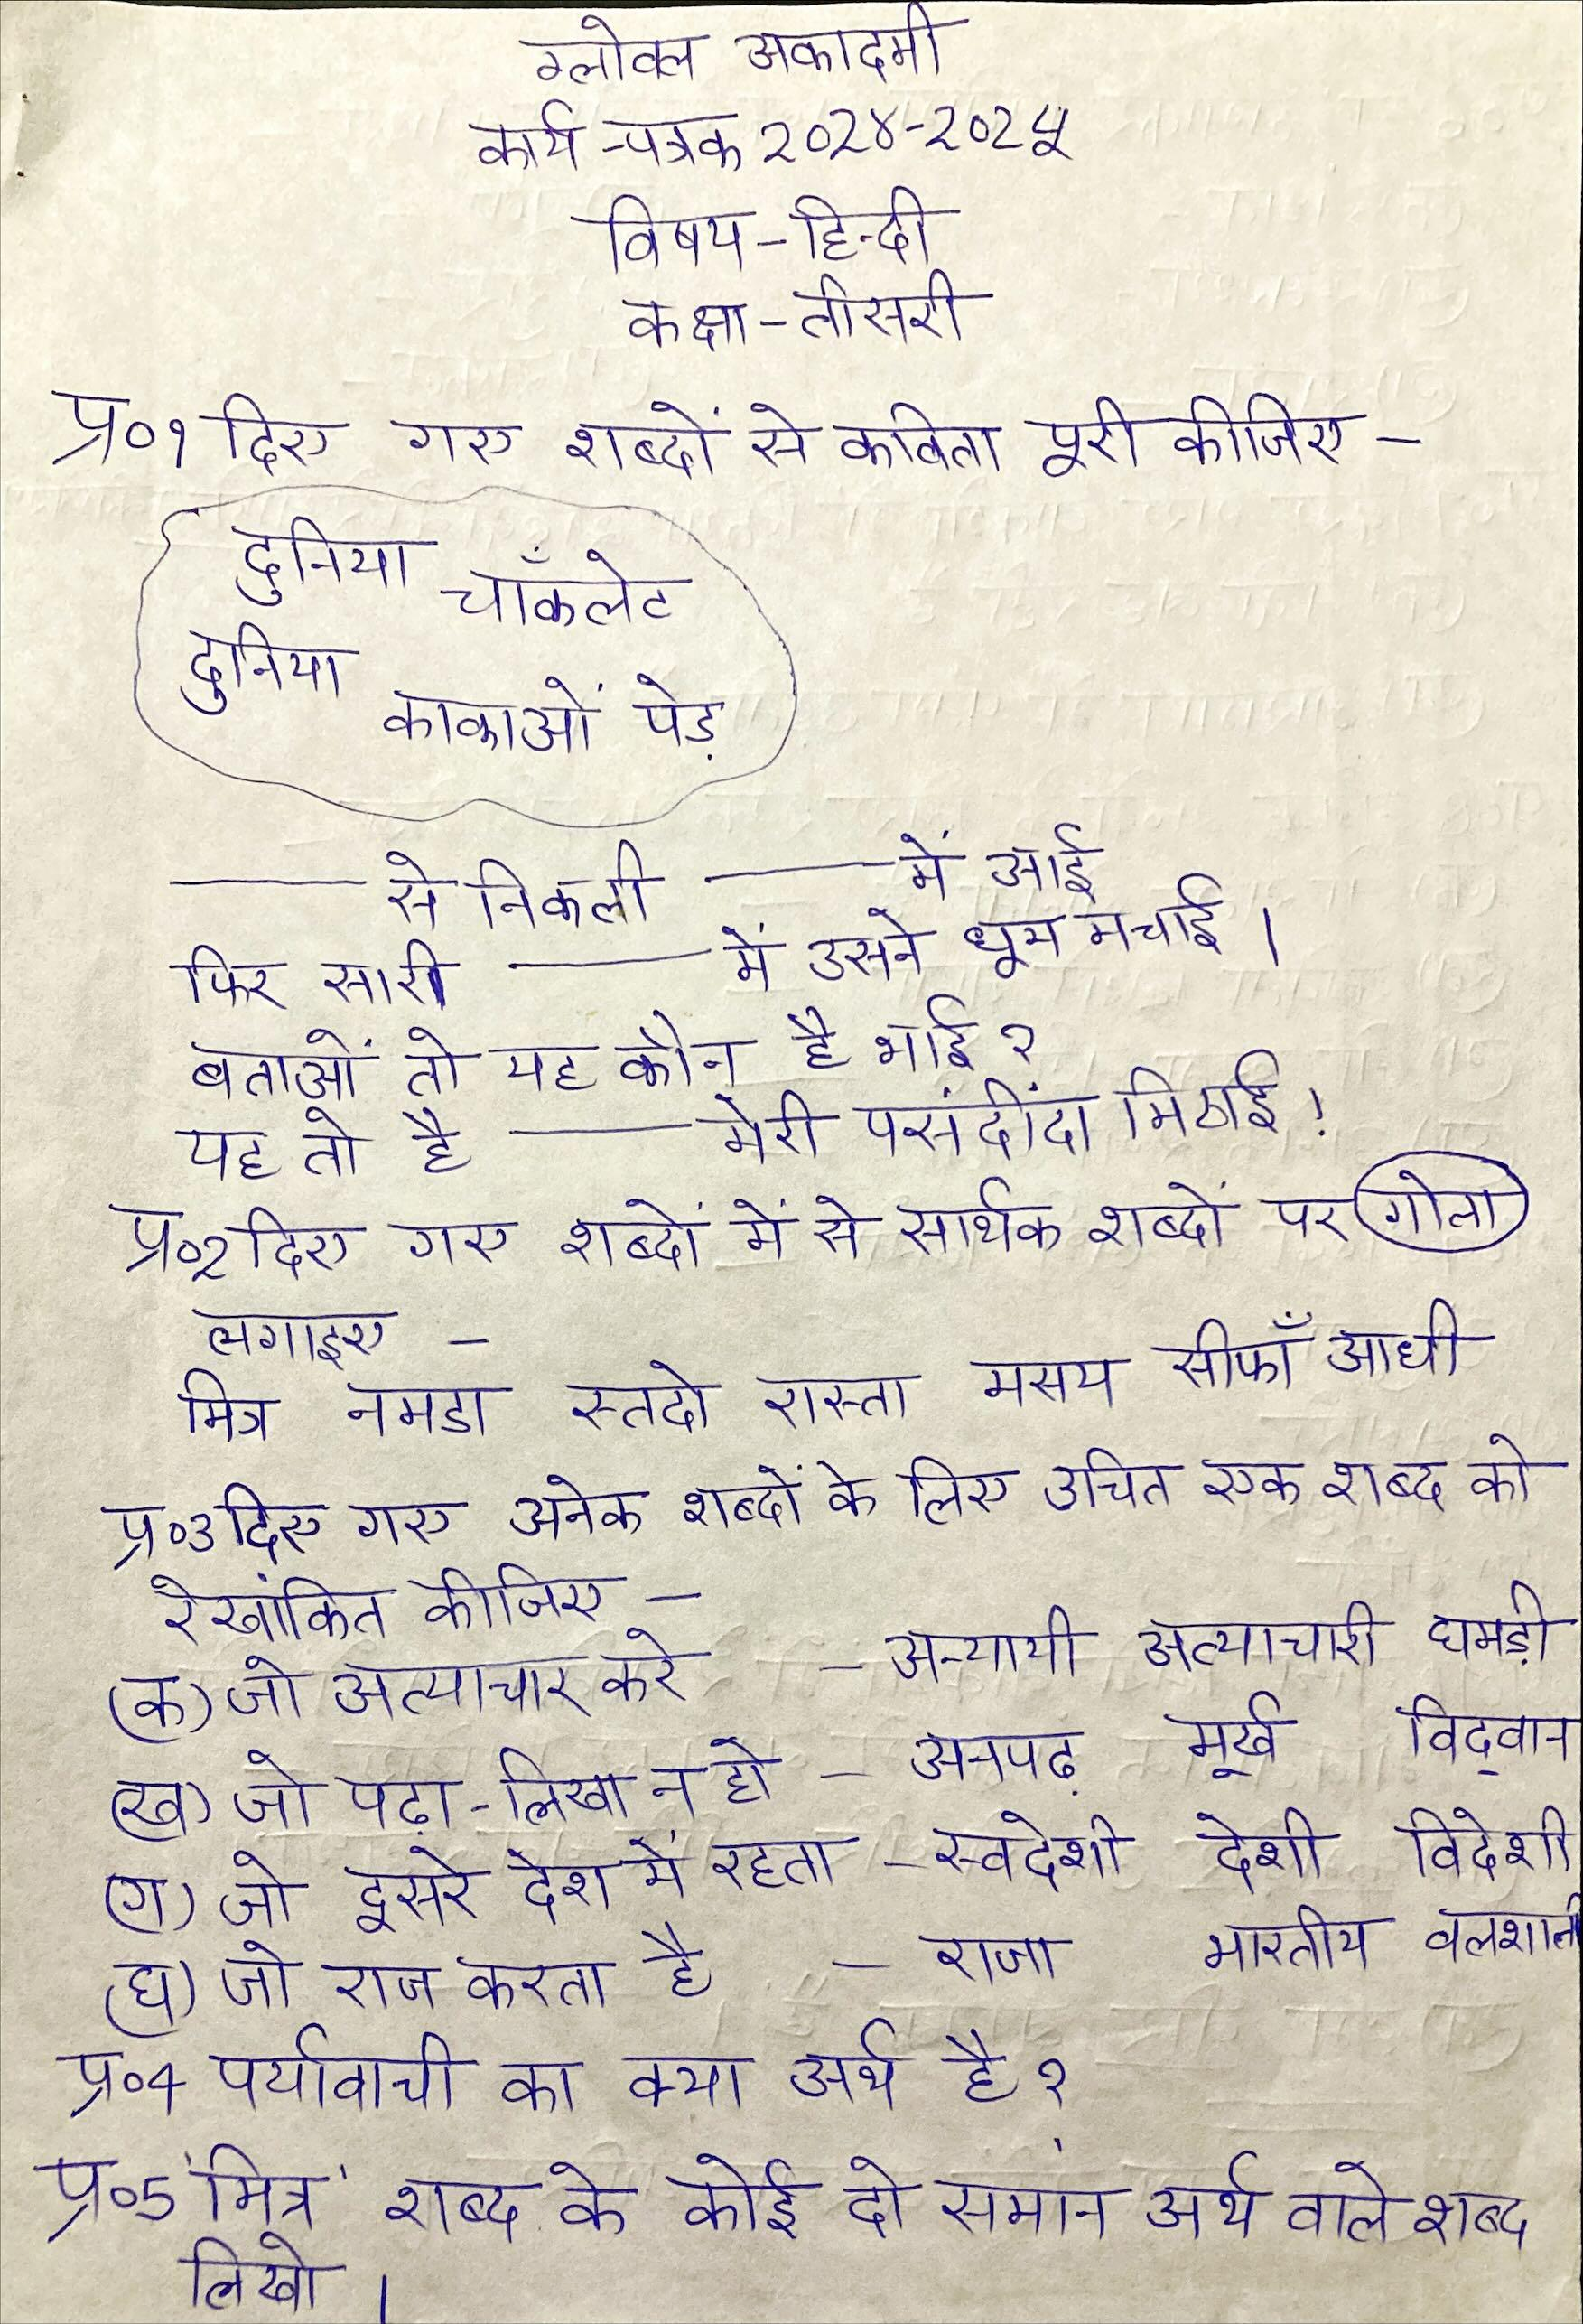 ग्लोबल अकादमी
कार्य-पत्रक २०२४-२०२५
विषय-हिन्दी
कक्षा-तीसरी
प्र०१ दिए गए शब्दों से कविता पूरी कीजिए -
दुनिया चाँकलेट
दुनिया
काकाओं पेड़
——— से निकली ——— में आई
फिर सारी ——— में उसने धूम मचाई ।
बताओं तो यह कौन है भाई ?
यह तो है ——— मेरी पसंदींदा मिठाई !
प्र०२ दिए गए शब्दों में से सार्थक शब्दों पर गोला
लगाइए -
मित्र नमडा स्तदो रास्ता मसय सीफाँ आधी
प्र०३ दिए गए अनेक शब्दों के लिए उचित एक शब्द को
रेखांकित कीजिए -
(क) जो अत्याचार करे - अन्यायी अत्याचारी घमड़ी
(ख) जो पढ़ा-लिखा न हो - अनपढ़ मूर्ख विद्वान
(ग) जो दूसरे देश में रहता - स्वदेशी देशी विदेशी
(घ) जो राज करता है - राजा भारतीय बलशाली
प्र०4 पर्यावाची का क्या अर्थ है ?
प्र०5 'मित्र' शब्द के कोई दो समान अर्थ वाले शब्द
लिखो ।